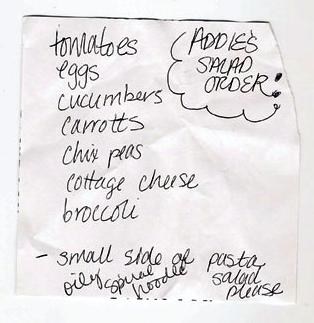 tomatoes
eggs
cucumbers
carrotts
chix peas
cottage cheese
broccoli
ADDIE'S
SALAD
ORDER!
- small side of pasta
oily spiral noodle salad
please